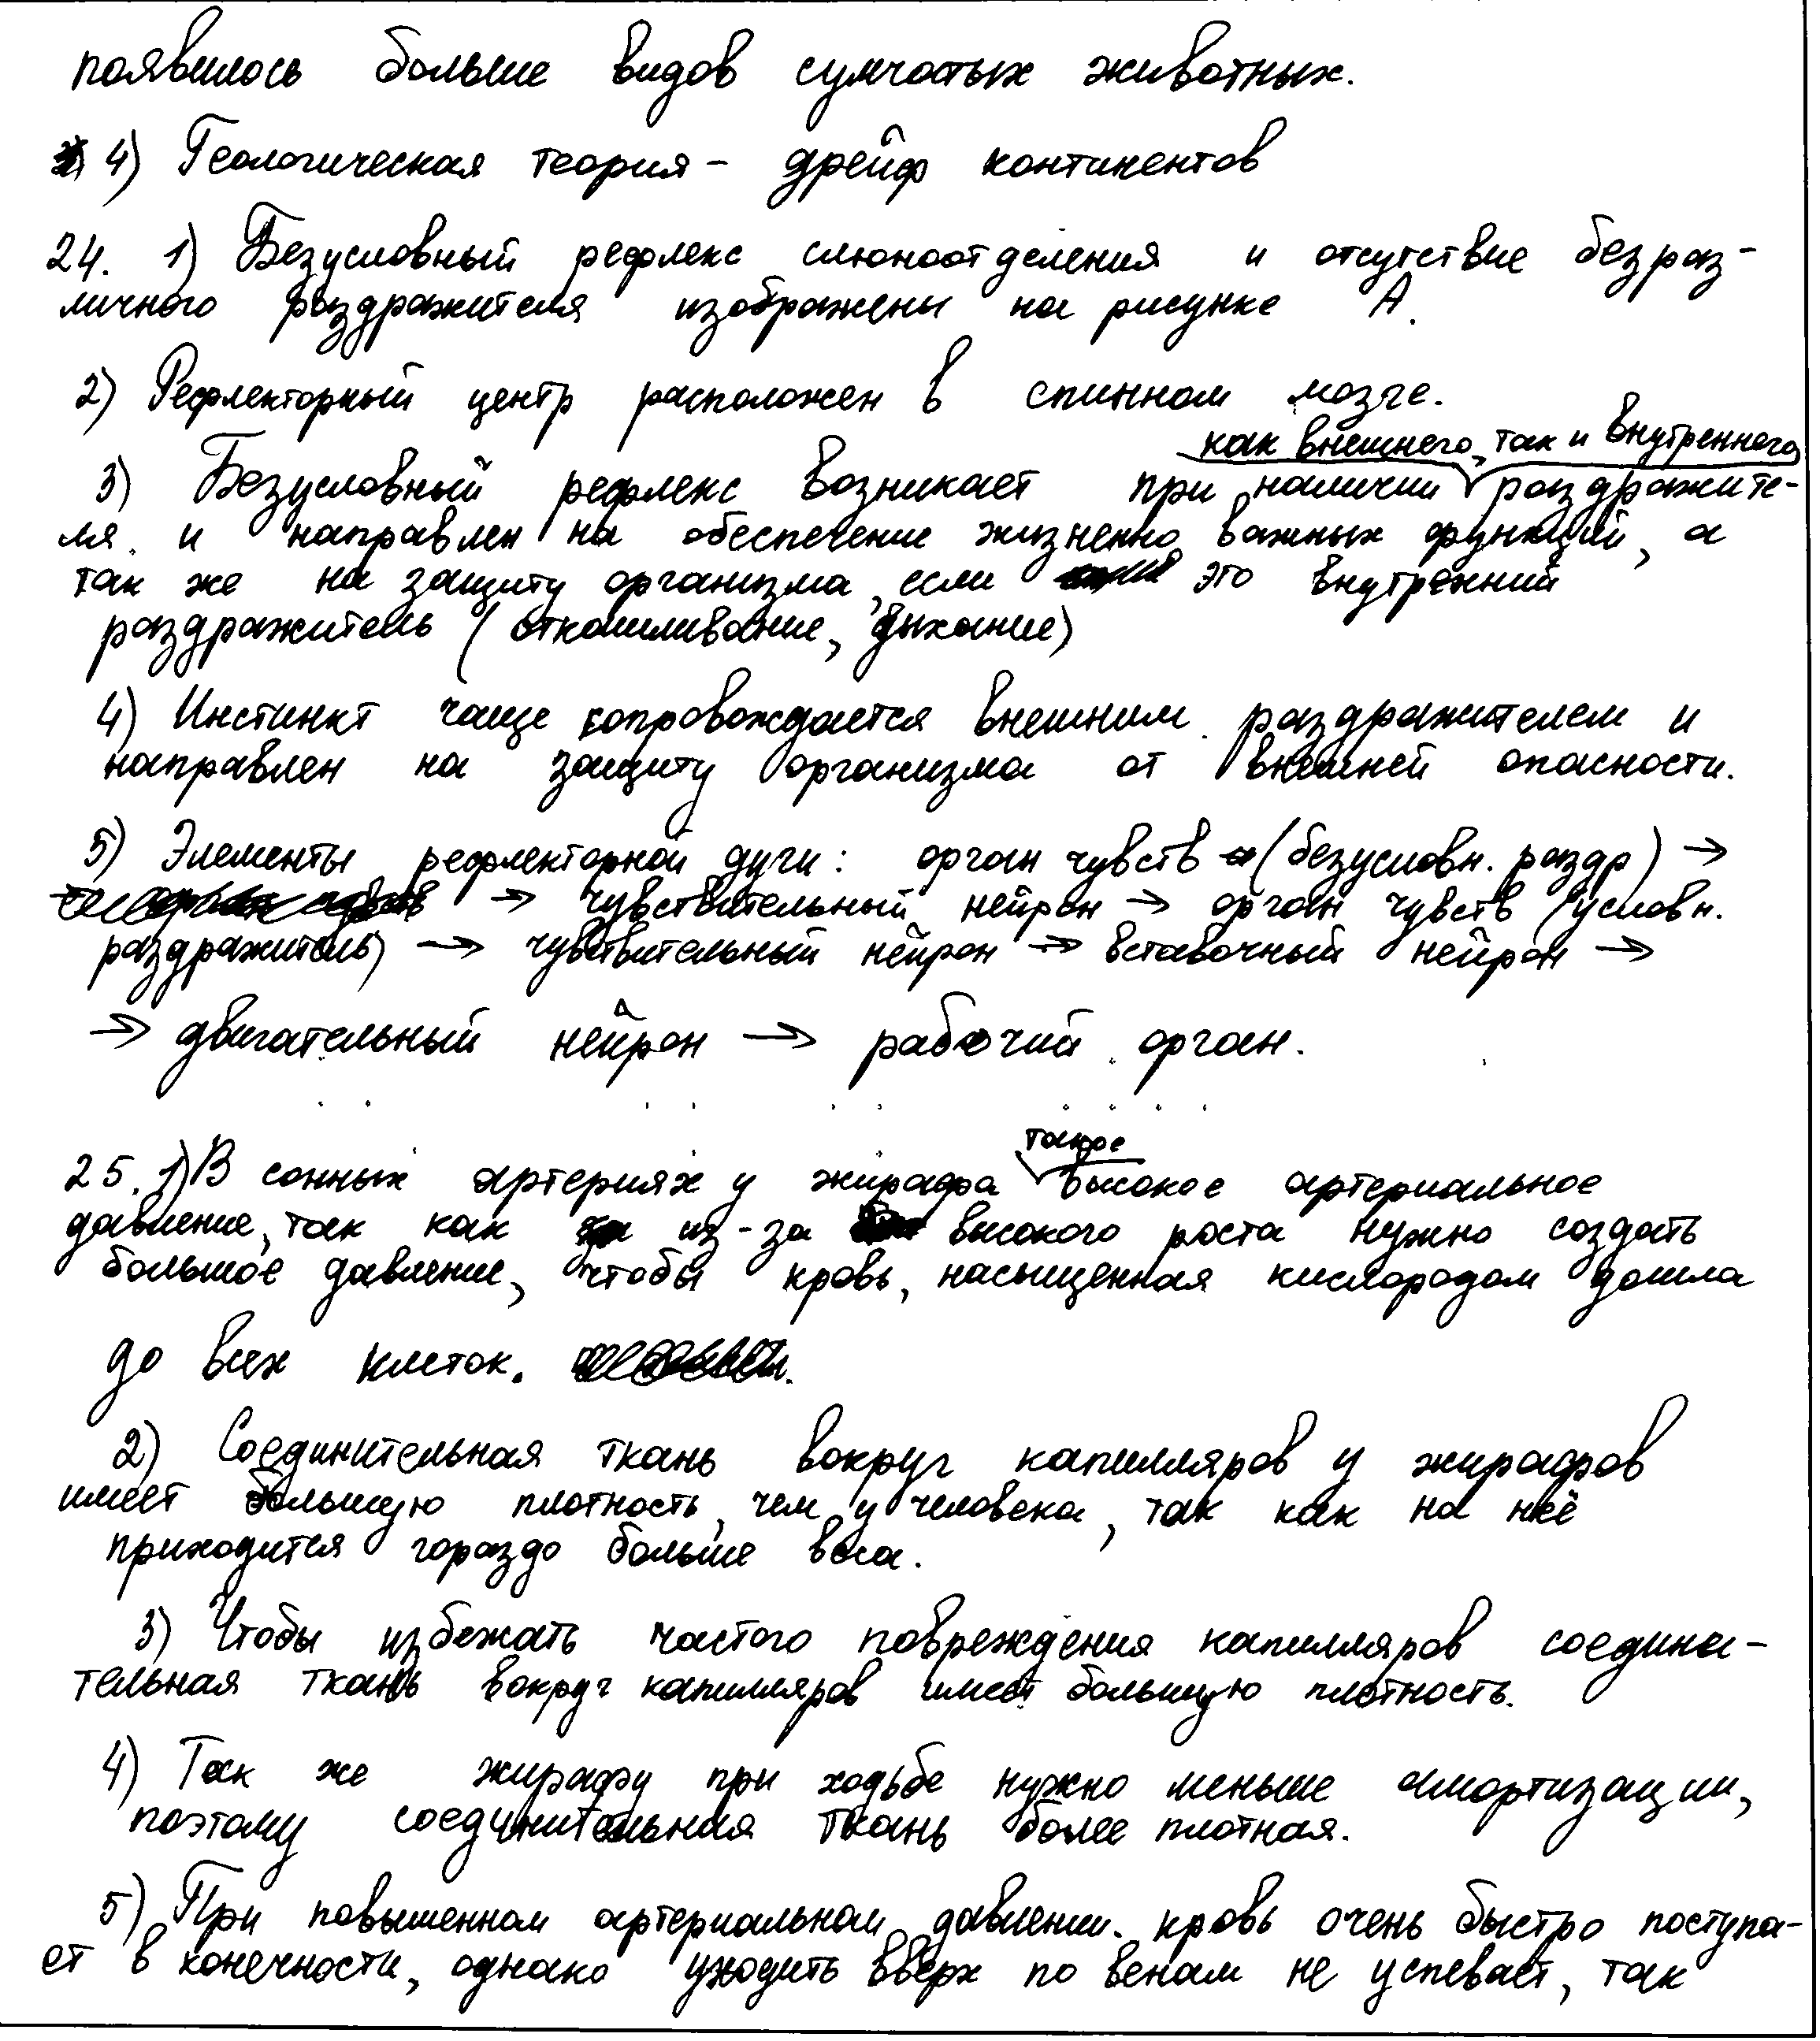 появилось больше видов сумчатых животных.
4) Геологическая теория - дрейф континентов
24. 1) Безусловный рефлекс слюноотделения и отсутствие безраз-
личного раздражителя изображены на рисунке А.
2) Рефлекторный центр расположен в спинном мозге.
как внешнего, так и внутреннего
3) Безусловный рефлекс возникает при наличии раздражите-
ля и направлен на обеспечение жизненно важных функций, а
так же на защиту организма, если это внутренний
раздражитель (откашливание, дыхание)
4) Инстинкт чаще сопровождается внешним раздражителем и
направлен на защиту организма от внешней опасности.
5) Элементы рефлекторной дуги: орган чувств (безусловн. раздр) →
→ чувствительный нейрон → орган чувств (условн.
раздражитель) → чувствительный нейрон → вставочный нейрон →
→ двигательный нейрон → рабочий орган.
такое
25. 1) В сонных артериях у жирафа высокое артериальное
давление, так как из-за высокого роста нужно создать
большое давление, чтобы кровь, насыщенная кислородом дошла
до всех клеток.
2) Соединительная ткань вокруг капилляров у жирафов
имеет большую плотность, чем у человека, так как на неё
приходится гораздо больше веса.
3) Чтобы избежать частого повреждения капилляров соедини-
тельная ткань вокруг капилляров имеет большую плотность.
4) Так же жирафу при ходьбе нужно меньше амортизации,
поэтому соединительная ткань более плотная.
5) При повышенном артериальном давлении кровь очень быстро поступа-
ет в конечности, однако уходить вверх по венам не успевает, так